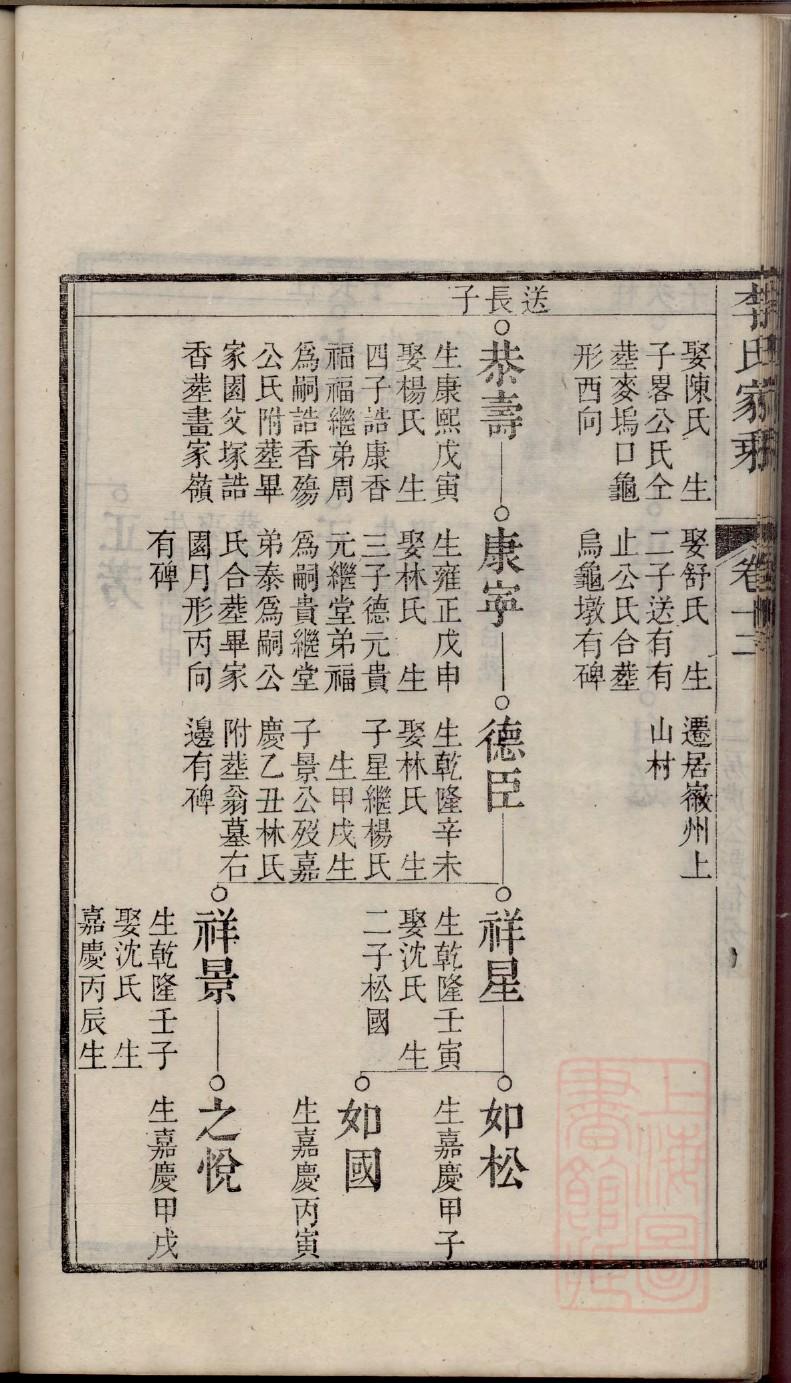 李氏家乘
卷十二
娶陳氏　生
子畧公氏仝
塟麥塢口龜
形西向
娶舒氏　生
二子送有有
止公氏合塟
烏龜墩有碑
遷居徽州上
山村
送長子
恭壽
生康熙戊寅
娶楊氏　生
四子誥康香
福福繼弟周
爲嗣誥香殤
公氏附塟畢
家園父塚誥
香塟畫家嶺
康寧
生雍正戊申
娶林氏　生
三子德元貴
元繼堂弟福
爲嗣貴繼堂
弟泰爲嗣公
氏合塟畢家
園月形丙向
有碑
德臣
生乾隆辛未
娶林氏　生
子星繼楊氏
生甲戌生
子景公歿嘉
慶乙丑林氏
附塟翁墓右
邊有碑
祥星
生乾隆壬寅
娶沈氏　生
二子松國
如松
生嘉慶甲子
如國
生嘉慶丙寅
祥景
生乾隆壬子
娶沈氏　生
嘉慶丙辰生
之悅
生嘉慶甲戌
上海圖
書館藏